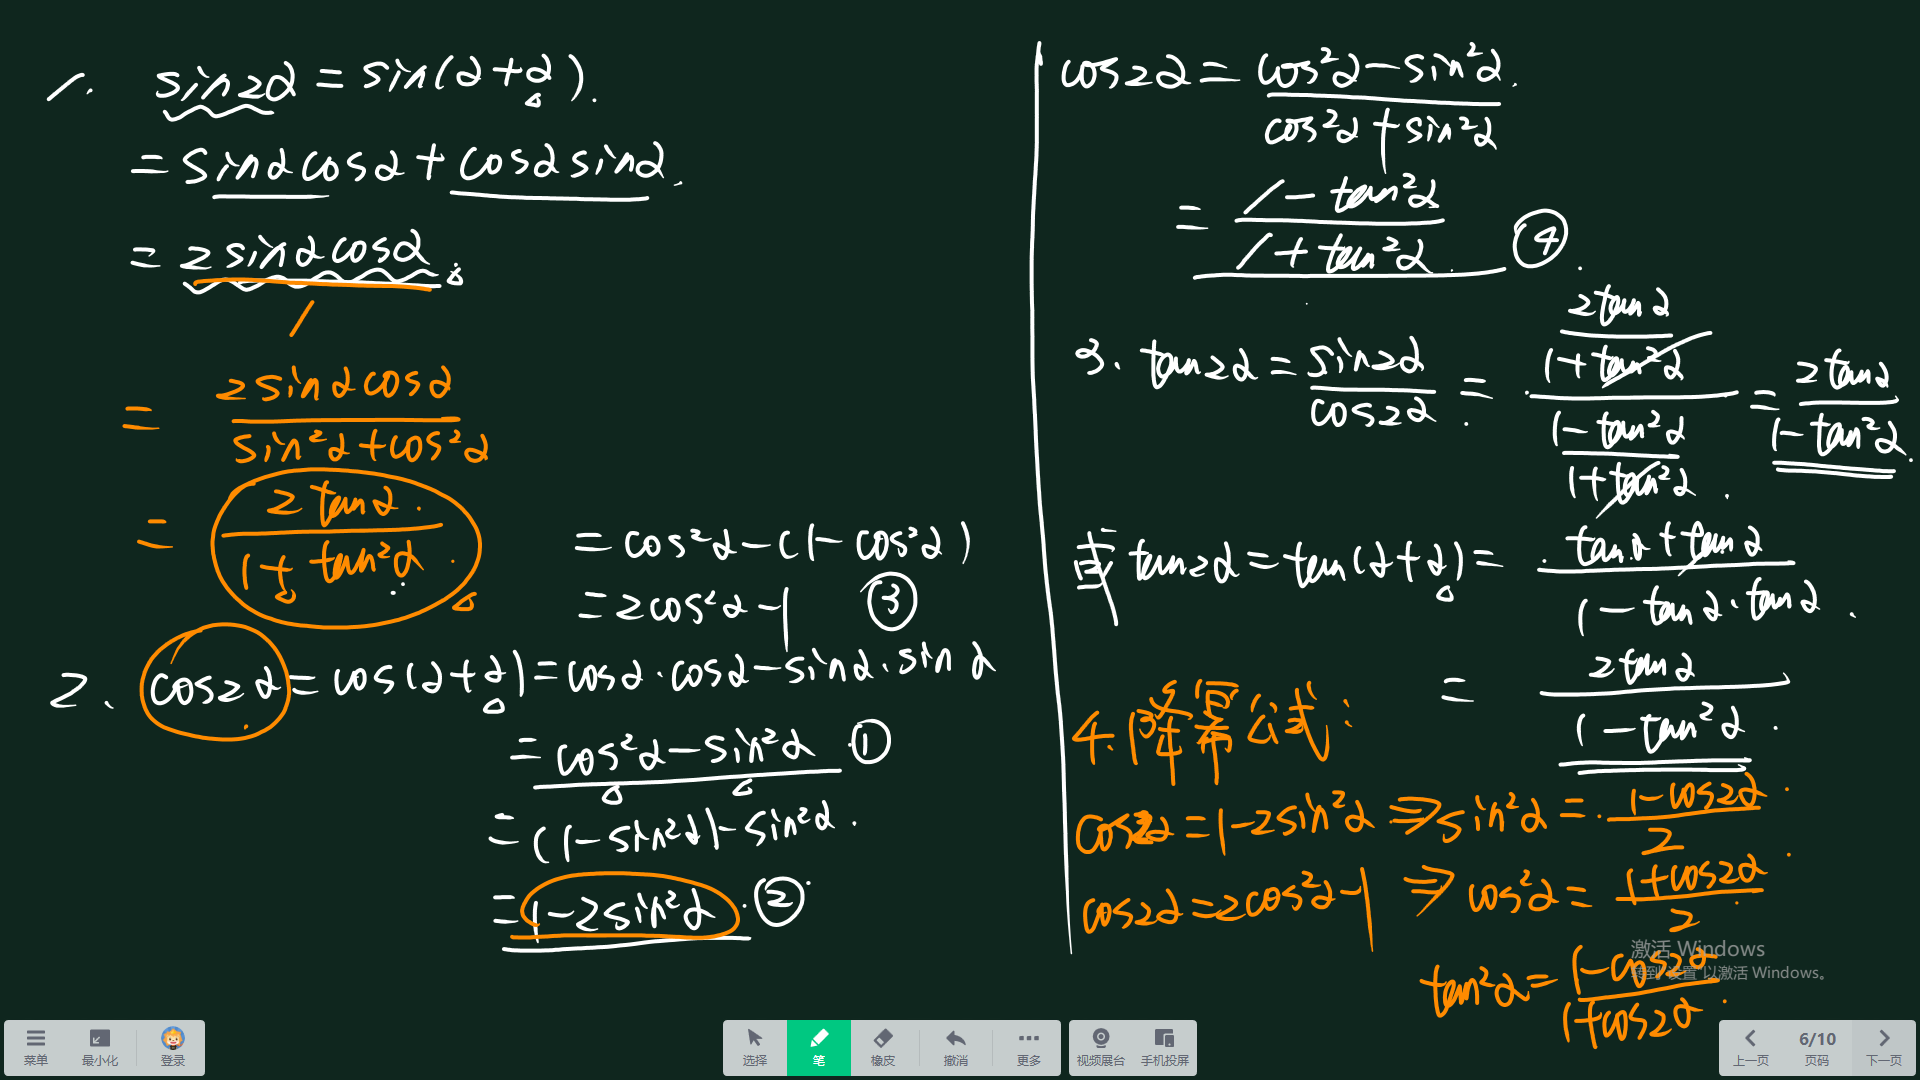 1. sin2α = sin(α+α).
= sinαcosα + cosαsinα.
= 2sinαcosα.
1
= 2sinαcosα / (sin²α+cos²α)
= 2tanα / (1+tan²α)
2、cos2α = cos(α+α) = cosα·cosα − sinα·sinα
= cos²α − sin²α ①
= (1−sin²α) − sin²α.
= 1−2sin²α. ②
= cos²α − (1−cos²α)
= 2cos²α − 1 ③
cos2α = (cos²α − sin²α) / (cos²α + sin²α)
= (1 − tan²α) / (1 + tan²α) ④
3. tan2α = sin2α / cos2α = (2tanα / (1+tan²α)) / ((1−tan²α) / (1+tan²α)) = 2tanα / (1−tan²α)
或 tan2α = tan(α+α) = (tanα + tanα) / (1 − tanα·tanα)
= 2tanα / (1 − tan²α)
4.降幂公式:
cos2α = 1−2sin²α ⇒ sin²α = (1−cos2α) / 2
cos2α = 2cos²α−1 ⇒ cos²α = (1+cos2α) / 2
tan²α = (1−cos2α) / (1+cos2α)
激活 Windows
转到"设置"以激活 Windows。
菜单 最小化 登录 选择 笔 橡皮 撤消 更多 视频展台 手机投屏 上一页 6/10 页码 下一页